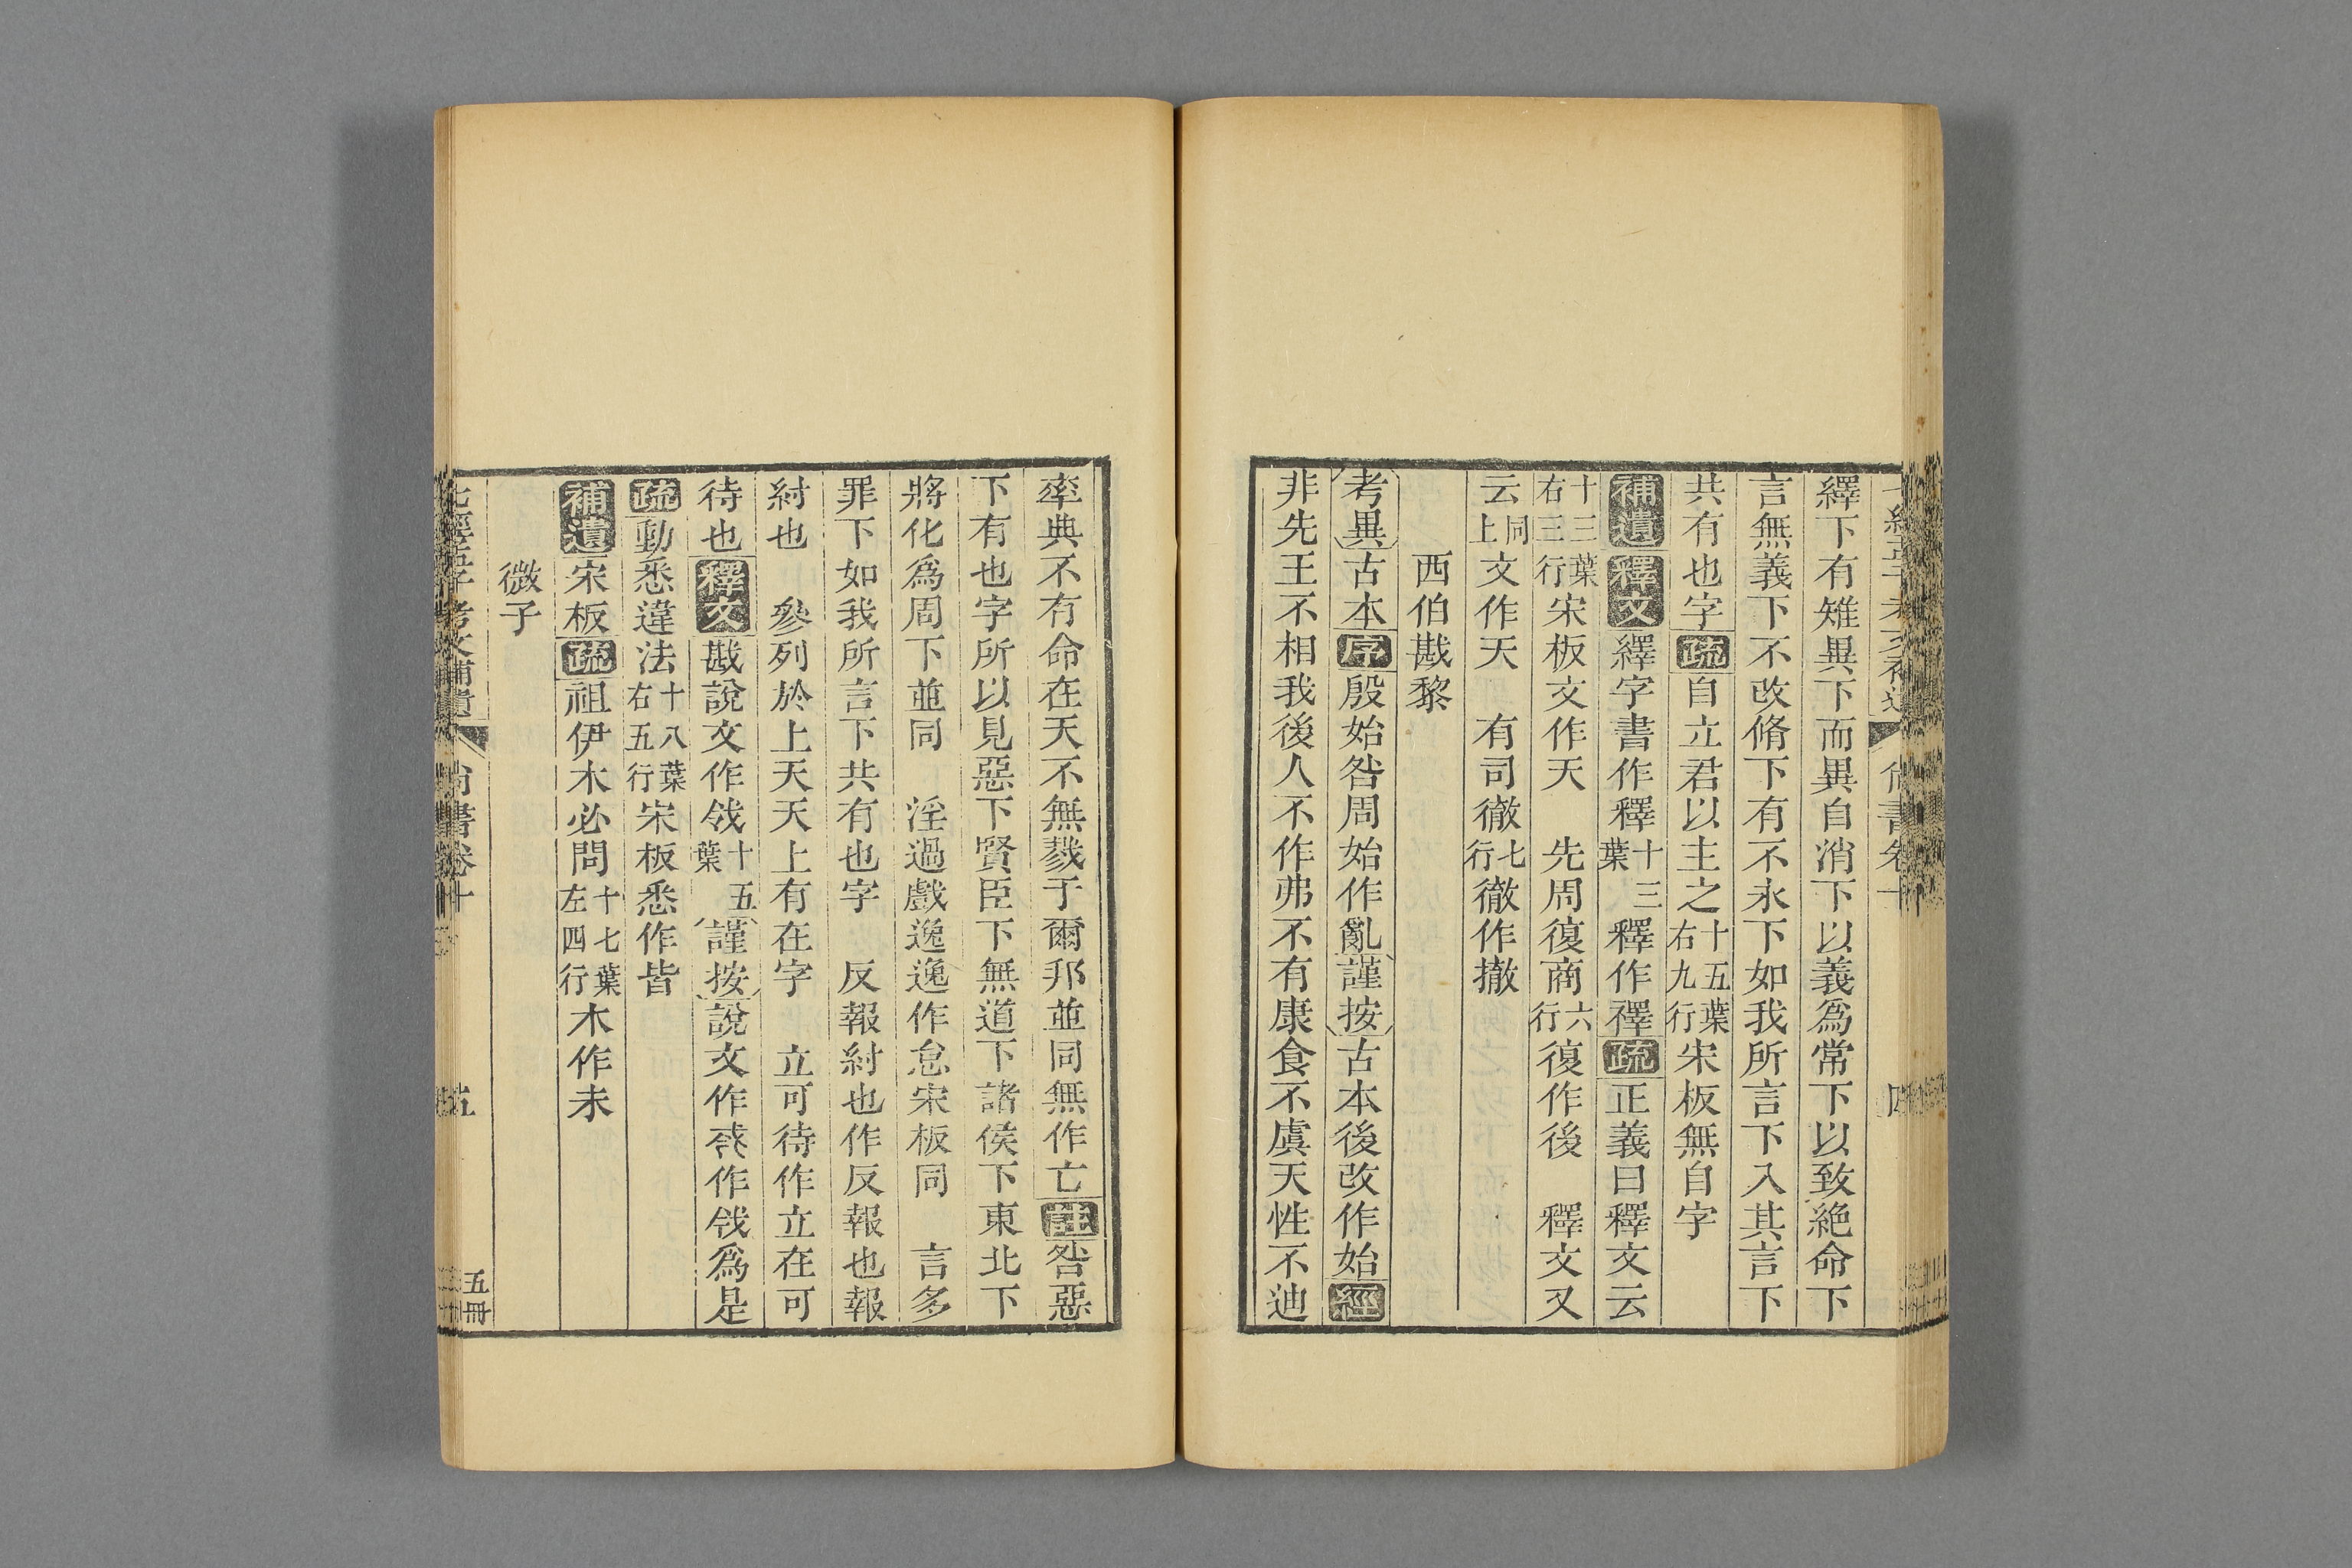 繹下有雉異下而異自消下以義爲常下以致絶命下
言無義下不改脩下有不永下如我所言下入其言下
共有也字疏自立君以主之十五葉右九行宋板無自字
補遺釋文繹字書作釋十三葉釋作襗疏正義曰釋文云
十三葉右三行宋板文作天　先周復商六行復作後　釋文又
云同上文作天　有司徹七行徹作撤
西伯戡黎
考異古本序殷始咎周始作亂謹按古本後改作始經
非先王不相我後人不作弗不有康食不虞天性不迪
率典不有命在天不無戮于爾邦並同無作亡註咎惡
下有也字所以見惡下賢臣下無道下諸侯下東北下
將化爲周下並同　淫過戲逸逸作怠宋板同　言多
罪下如我所言下共有也字　反報紂也作反報也報
紂也　參列於上天天上有在字　立可待作立在可
待也釋文戡說文作㦰十五葉謹按說文作作㦰爲是
疏動悉違法十八葉右五行宋板悉作皆
補遺宋板疏祖伊木必問十七葉左四行木作未
微子
七經孟子考文補遺　尚書卷十　五　五冊